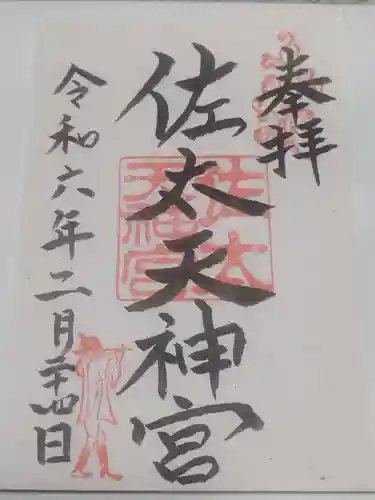 奉拝
佐太天神宮
佐太
天神宮
令和六年二月廿四日